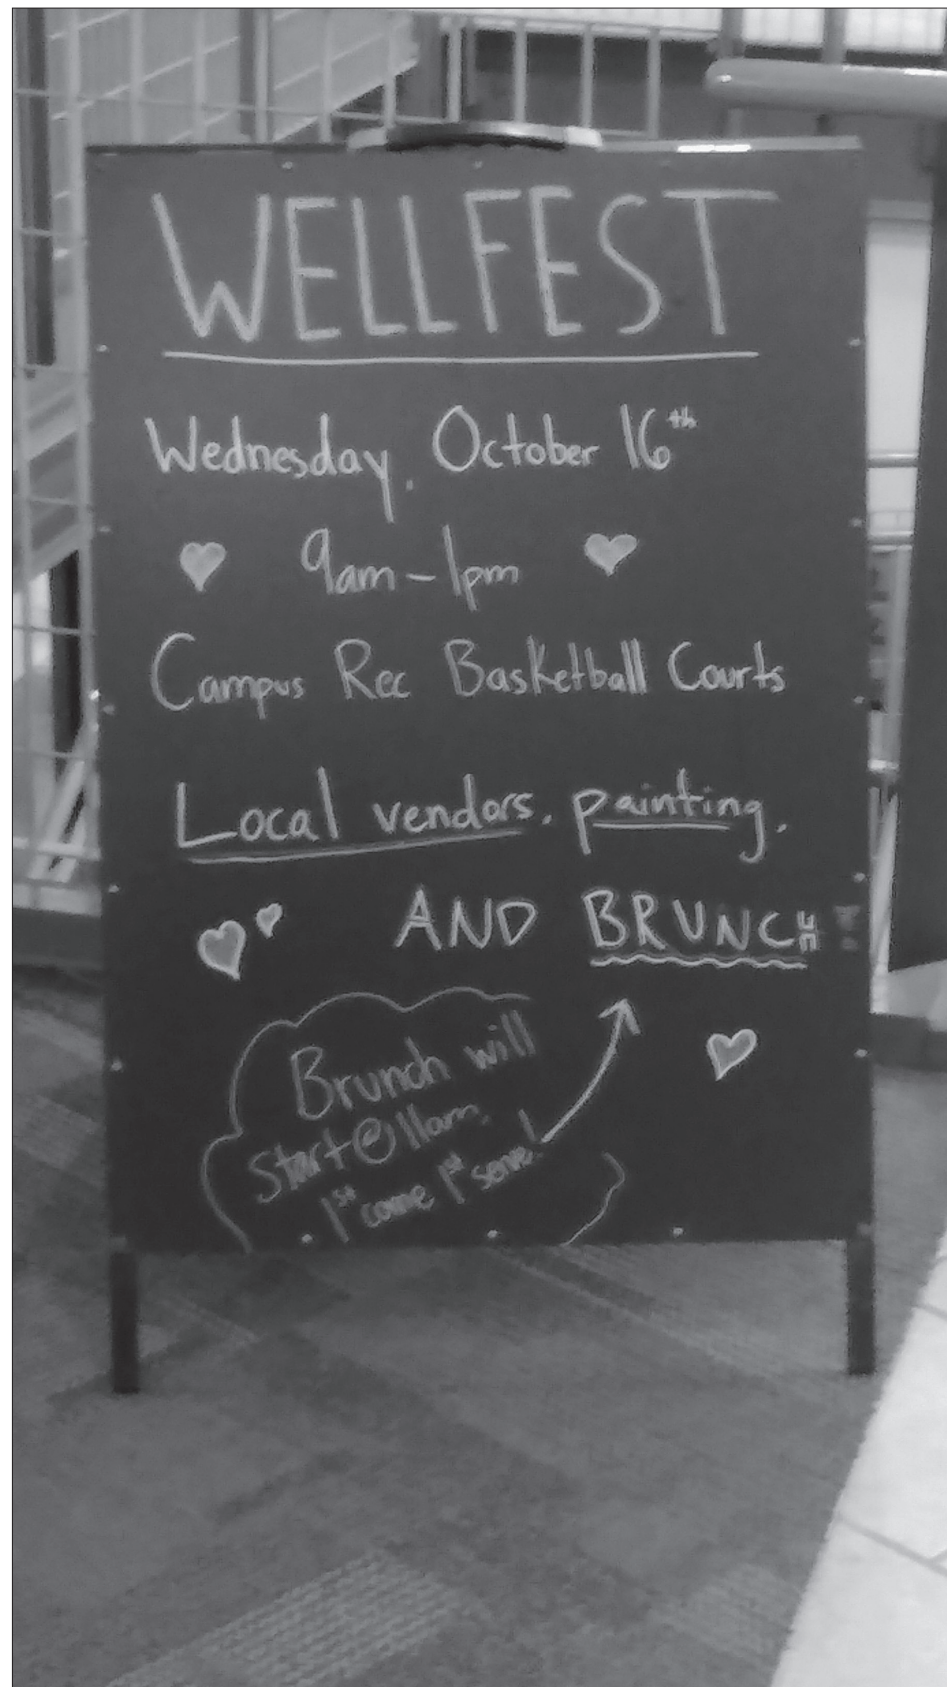 WELLFEST
Wednesday, October 16th
9am-1pm
Campus Rec Basketball Courts
Local vendors, painting,
AND BRUNCH
Brunch will
start@11am,
1st come 1st serve!